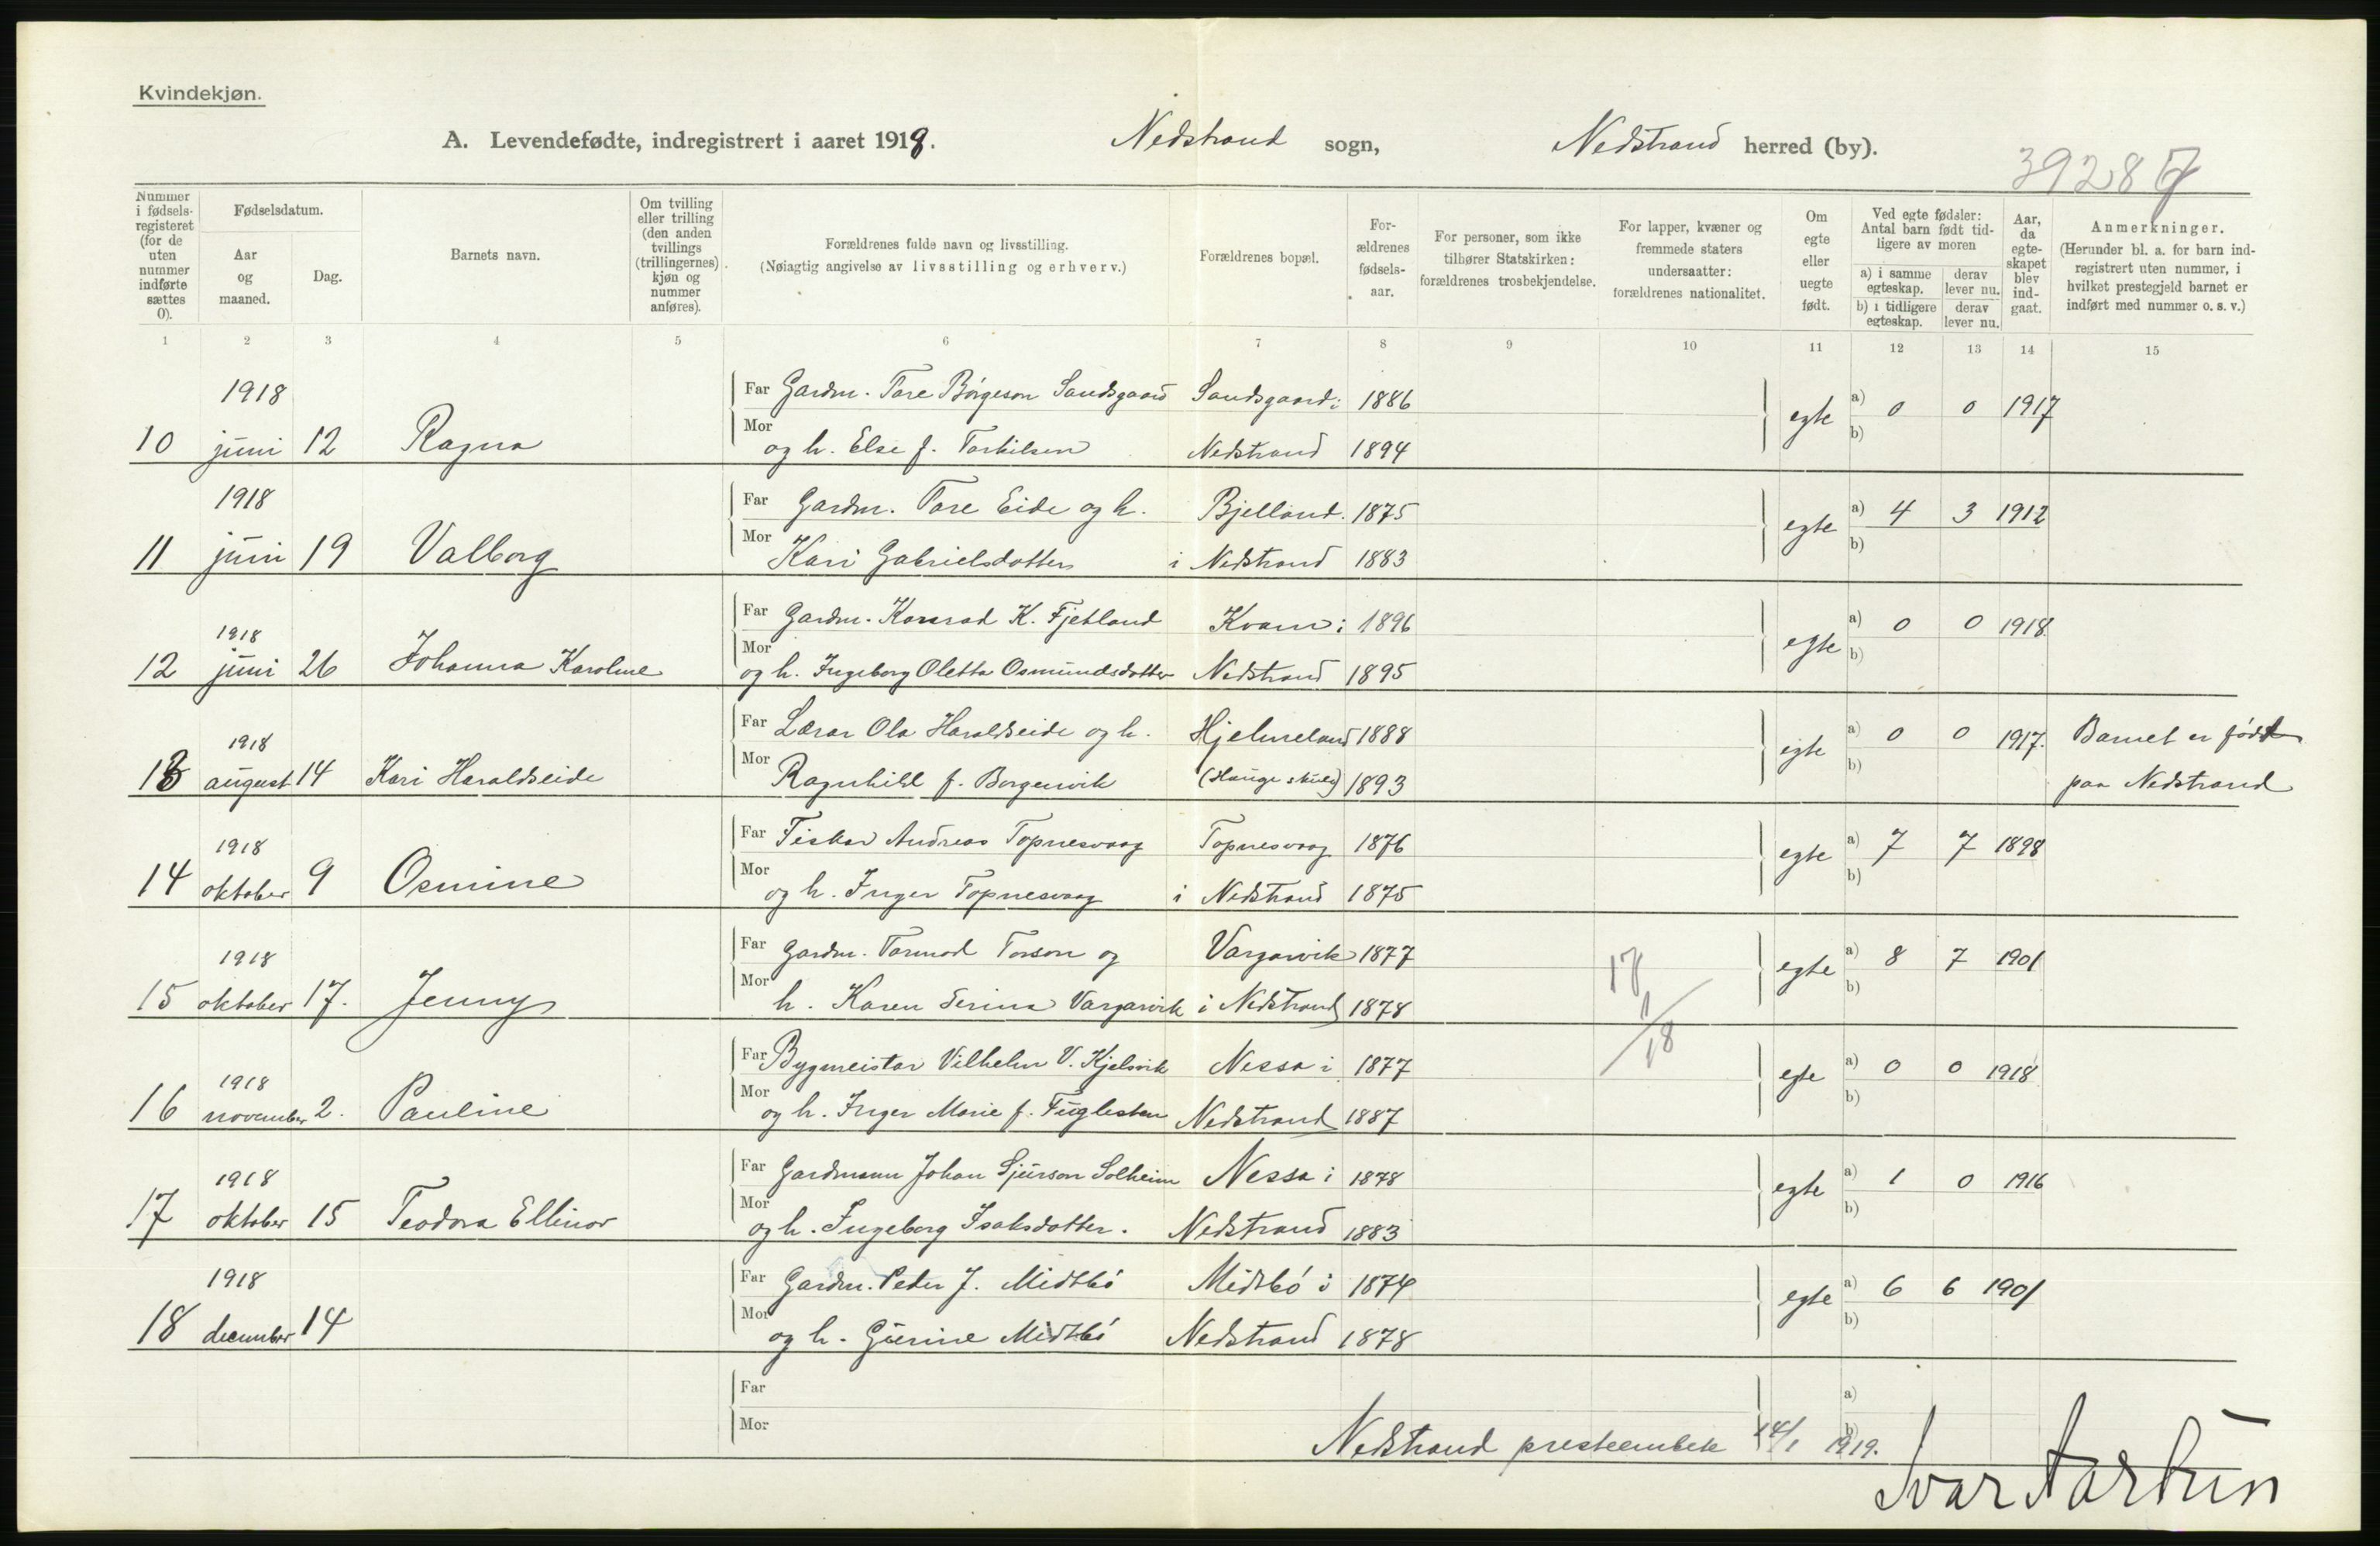 Kvindekjøn.
A. Levendefødte, indregistrert i aaret 1918. Nedstrand sogn, Nedstrand herred (by).
39287
Nummer i fødsels-registeret (for de uten nummer indførte sættes 0).
Fødselsdatum.
Aar og maaned.
Dag.
Barnets navn.
Om tvilling eller trilling (den anden tvillings (trillingernes) kjøn og nummer anføres).
Forældrenes fulde navn og livsstilling.
(Nøiagtig angivelse av livsstilling og erhverv.)
Forældrenes bopæl.
For-ældrenes fødsels-aar.
For personer, som ikke tilhører Statskirken: forældrenes trosbekjendelse.
For lapper, kvæner og fremmede staters undersaatter: forældrenes nationalitet.
Om egte eller uegte født.
Ved egte fødsler: Antal barn født tid-ligere av moren
a) i samme egteskap. derav lever nu.
b) i tidligere egteskap. derav lever nu.
Aar, da egte-skapet blev ind-gaat.
Anmerkninger.
(Herunder bl. a. for barn ind-registrert uten nummer, i hvilket prestegjeld barnet er indført med nummer o. s. v.)
1 2 3 4 5 6 7 8 9 10 11 12 13 14 15
1918 Far Gardm. Tore Börgeson Sandsgaard Sandsgaard i 1886 egte a) 0 0 1917
10 juni 12 Ragna Mor og h. Else f. Torkilsen Nedstrand 1894 b)
1918 Far Gardm. Tore Eide og h. Bjelland. 1875 egte a) 4 3 1912
11 juni 19 Valborg Mor Kari Gabrielsdotter i Nedstrand 1883 b)
1918 Far Gardm. Konrad K. Fjetland Kvam i 1896 egte a) 0 0 1918
12 juni 26 Johanna Karoline Mor og h. Ingeborg Oletta Osmundsdotter Nedstrand 1895 b)
1918 Far Lærar Ola Haraldseide og h. Hjelmeland 1888 egte a) 0 0 1917. Barnet er födt
13 august 14 Kari Haraldseide Mor Ragnhild f. Borgenvik (Hauge skule) 1893 b) paa Nedstrand
1918 Far Fiskar Andreas Topnesvaag Topnesvaag 1876 egte a) 7 7 1898
14 oktober 9 Osmine Mor og h. Inger Topnesvaag i Nedstrand 1875 b)
1918 Far Gardm. Tormod Torson og Vargavik 1877 egte a) 8 7 1901
15 oktober 17. Jenny Mor h. Karen Serina Vargavik i Nedstrand 1878 b)
17 1/18
1918 Far Bygmeistar Vilhelm V. Kjelsvik Nessa i 1877 egte a) 0 0 1918
16 november 2. Pauline Mor og h. Inger Marie f. Fuglesten Nedstrand 1887 b)
1918 Far Gardmann Johan Sjurson Solheim Nessa i 1878 egte a) 1 0 1916
17 oktober 15 Teodora Ellinor Mor og h. Ingeborg Isaksdotter. Nedstrand 1883 b)
1918 Far Gardm. Peder J. Midtbö Midtbö i 1874 egte a) 6 6 1901
18 december 14 Mor og h. Gurine Midtbö Nedstrand 1878 b)
Far a)
Mor b)
Nedstrand presteembete 14/1 1919.
Ivar Aartun